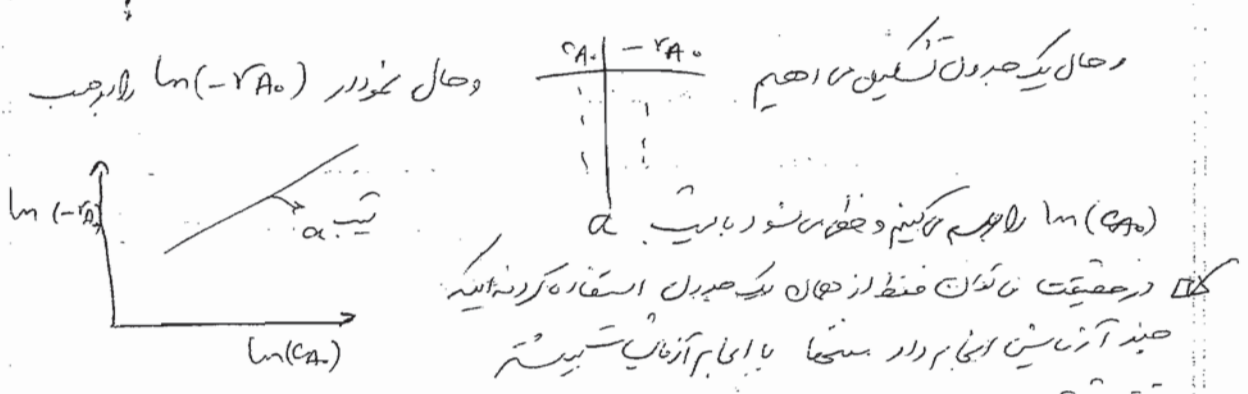 و حال یک جدول تشکیل می دهیم
C_A₀ | -r_A₀
و حال نمودار ln(-r_A₀) را برحسب
ln(C_A₀) را رسم می‌کنیم و خطی می شود با شیب a
ln(-r_A₀)
شیب a
ln(C_A₀)
در حقیقت می توان فقط از همان یک جدول استفاده کرد نه اینکه
چند آزمایش انجام داد منتها با انجام آزمایشات بیشتر